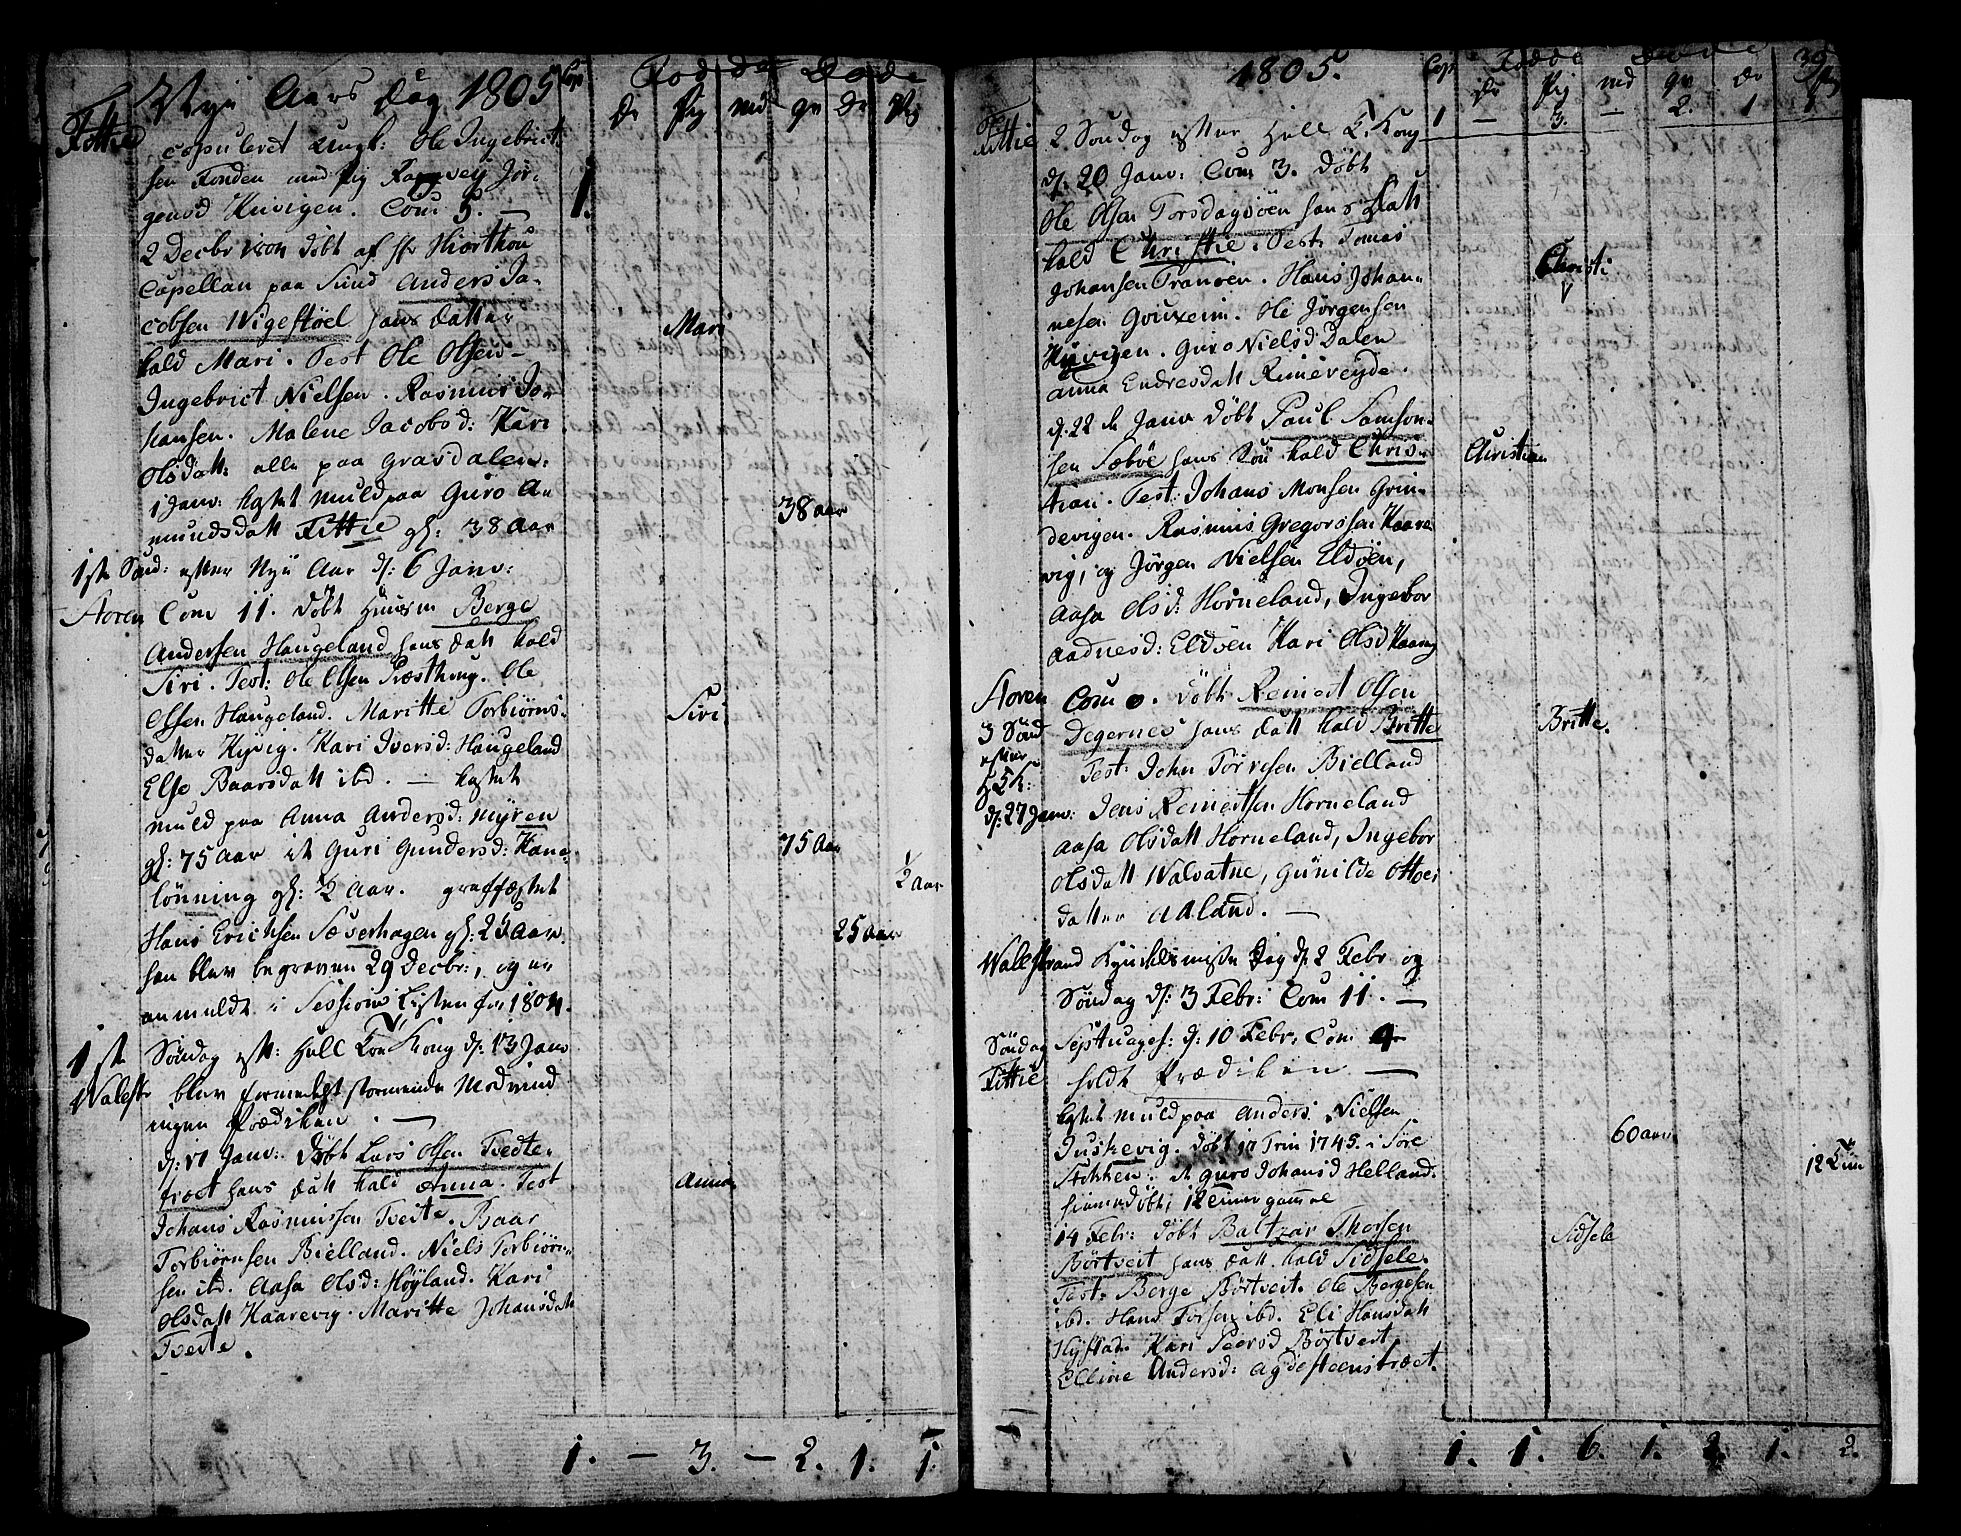 Nye Aars Dag 1805 Cop Fødde Døde
Dr Pig md qv Dr Pig
Fittie
copuleret Ungk: Ole Ingebrict-
sen Fonden med Pig Rangvey Jør-
gensd Kuvigen. Com 5. — 1.
2 Decbr 1804 døbt af Hr Hiorthou
Capellan paa Sund Anders Ja-
cobsen Wigestøel hans Datter
kald Mari. Test Ole Olsen – Mari
Ingebrict Nielsen. Rasmus Jo-
hansen. Malene Jacobsd: Kari
Olsdatt: alle paa Grasdalen.
1 Janv: kastet Muld paa Guro A- 38 aar
mundsdatt Fittie gl: 38 Aar
1ste Sønd: efter Nyt Aar d: 6 Janv:
Storen Com 11. Døbt Huusm Berge
Andersen Haugeland hans Datt kald
Siri. Test: Ole Olsen Præsthuug. Ole
Olsen Haugeland. Maritte Torbiørns- Siri
datter Kyvig. Kari Iversd: Haugeland
Else Baarsdatt ibd. — kastet
Muld paa Anna Andersd: Myren
gl: 75 Aar it Guri Gundersd: Kane- 75 Aar
lønning gl: ½ Aar. graffæstet ½ Aar
Hans Erichsen Sæverhagen gl: 25 Aar. 25 Aar
han blev begraven 29 Decbr:, og er
anmeldt i Sessions Listen for 1804.
1ste Søndag eft: Hell 3 Kong d: 13 Janv
Walestr blev formedelst stormende Modvind
ingen Prædiken. —
d: 17 Janv: Døbt Lars Olsen Tvedte-
træet hans Datt kald Anna. Test Anna
Johans Rasmussen Tvedte. Baar
Torbiørnsen Bielland. Niels Torbiørn-
sen ibd. Aasa Olsd: Høyland. Kari
Olsdatt Kaarevig. Maritte Johansdatt
Tvedte.
1. — 3. — 2. 1. 1.
1805. Cop Fødde Døde 39
Dr Pig md qv Dr Pig
1 — 3. — 2. 1 1
Fittie 2 Søndag efter Hell 3 Kong
d: 20 Janv: Com 3. Døbt
Ole Olsen Torsdagsøen hans Datt
kald Christie. Test: Tomas Christi
Johansen Tranøen. Hans Johan-
nesen Gouxeim. Ole Jørgensen
Kuvigen. Guro Nielsd Dalen
Anna Endresdatt Rimereyde.
d: 22de Janv døbt Paul Samson-
sen Sæbøe hans Søn kald Chris- Christian
tian. Test: Johans Monsen Grin-
devigen. Rasmus Gregorssen Kaare-
vig, og Jørgen Nielsen Eldøen,
Aasa Olsd: Horneland, Ingebor
Aadnesd: Eldøen Kari Olsd Kaarevig
Storen Com 0. Døbt Reinert Olsen
3 Sønd Degernes hans Datt kald Britte Britte.
efter Test: John Torresen Bielland
H 3 K:
d: 27 Janv: Jens Reinertsen Horneland
Aasa Olsdatt Horneland, Ingebor
Olsdatt Walvatne, Gunilde Ottos
datter Aaland. —
Wallestrand Kyndelsmisse Dag d: 2 Febr og
Søndag d: 3 Febr: Com 11. —
Søndag Septuages: d: 10 Febr: Com 4
Fittie holdt Prædiken —
kastet Muld paa Anders Nielsen 60 aar
Juskevig. døbt 17 Trin 1745. i Søre
Stokken. it Guro Johansd Helland. 12 Tim
hiemmedøbt, 12 Timer gammel
14 Febr: døbt Baltzar Thorsen Sidsele
Børtveit hans Datt. kald Sidsele.
Test: Berge Børtveit. Ole Bergesen
ibd. Hans Torsen ibd. Eli Hansdatt
Hystad. Kari Peersd Børtveit
Elline Andersd: Agdesteenstræet.
1. 1. 6. 1. 2. 1. 2.